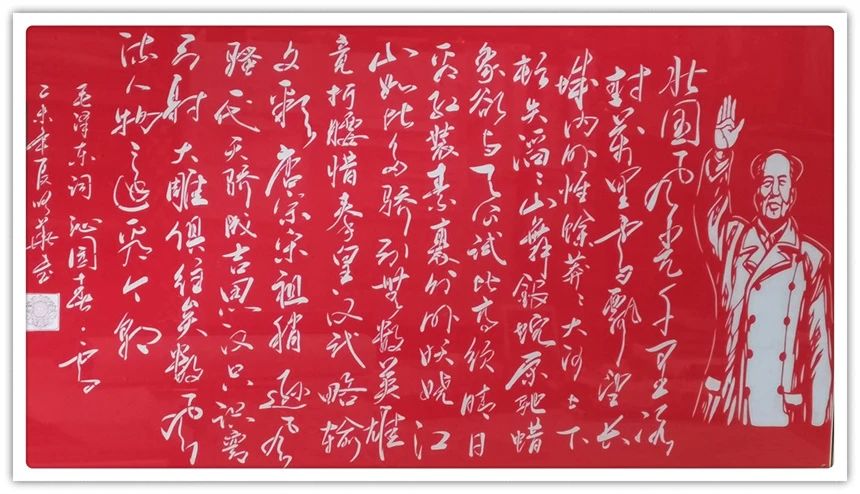 北国风光千里冰
封萬里雪飘望长
城内外惟馀莽々大河上下
顿失滔々山舞銀蛇原驰蜡
象欲与天公试比高须晴日
看红装素裹分外妖娆江
山如此多骄引無数英雄
竞折腰惜秦皇汉武略输
文彩唐宗宋祖稍逊风
骚一代天骄成吉思汉只识弯
弓射大雕俱往矣数风
流人物还看今朝
毛泽东词沁园春·雪
乙未年夏明華书